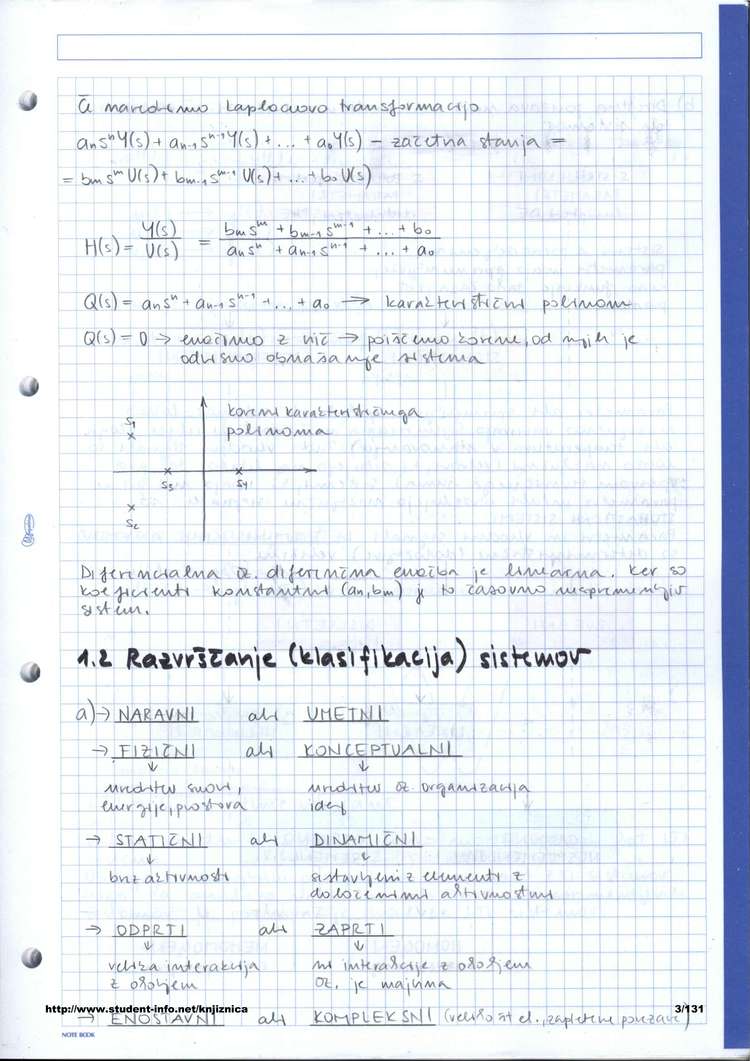 Če naredimo Laplaceovo transformacijo
aₙsⁿY(s) + aₙ₋₁sⁿ⁻¹Y(s) + ... + a₀Y(s) − začetna stanja =
= bₘsᵐU(s) + bₘ₋₁sᵐ⁻¹U(s) + ... + b₀U(s)
H(s) = Y(s)/U(s) = (bₘsᵐ + bₘ₋₁sᵐ⁻¹ + ... + b₀)/(aₙsⁿ + aₙ₋₁sⁿ⁻¹ + ... + a₀)
Q(s) = aₙsⁿ + aₙ₋₁sⁿ⁻¹ + ... + a₀ → karakteristični polinom
Q(s) = 0 → enačimo z nič → poiščemo korene, od njih je
odvisno obnašanje sistema
koreni karakterističnega
polinoma
s₁
s₃ s₄
s₂
Diferencialna oz. diferenčna enačba je linearna. Ker so
koeficienti konstantni (aₙ, bₘ) je to časovno nespremenljiv
sistem.
1.2 Razvrščanje (klasifikacija) sistemov
a) → NARAVNI ali UMETNI
→ FIZIČNI ali KONCEPTUALNI
ureditev snovi, ureditev oz. organizacija
energije, prostora idej
→ STATIČNI ali DINAMIČNI
brez aktivnosti sestavljeni z elementi z
določenimi aktivnostmi
→ ODPRTI ali ZAPRTI
velika interakcija ni interakcije z okoljem
z okoljem oz. je majhna
http://www.student-info.net/knjiznica 3/131
→ ENOSTAVNI ali KOMPLEKSNI (veliko št el., zapletene povezave)
NOTE BOOK